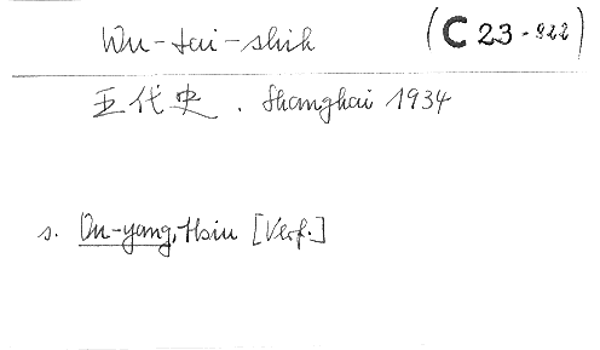 Wu-tai-shih (C 23-922)
五代史. Shanghai 1934
s. Ou-yang, Hsiu [Verf.]